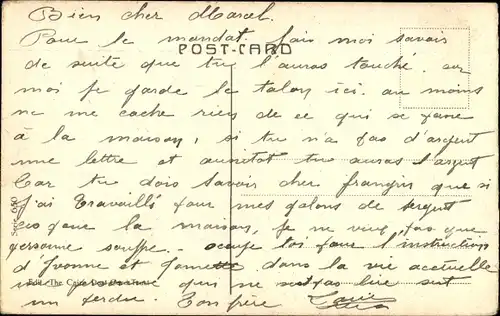 Bien cher Marcel.
Pour le mandat. fais moi savoir
POST-CARD
de suite que tu l'auras touché. sur
moi je garde le talon ici. au moins
ne me cache rien de ce qui se passe
à la maison, si tu n'a pas d'argent
une lettre et aussitot tu auras l'argent
Car tu dois savoir cher frangin que si
j'ai travaillé pour mes galons de sergent
c'es pour la maison, je ne veux pas que
personne souffre. occupe toi pour l'instruction
d'Yvonne et dans la vie actuelle
une personne qui ne sait pas lire est
un perdue. Ton frère
Serie 650
Edit. The Cairo